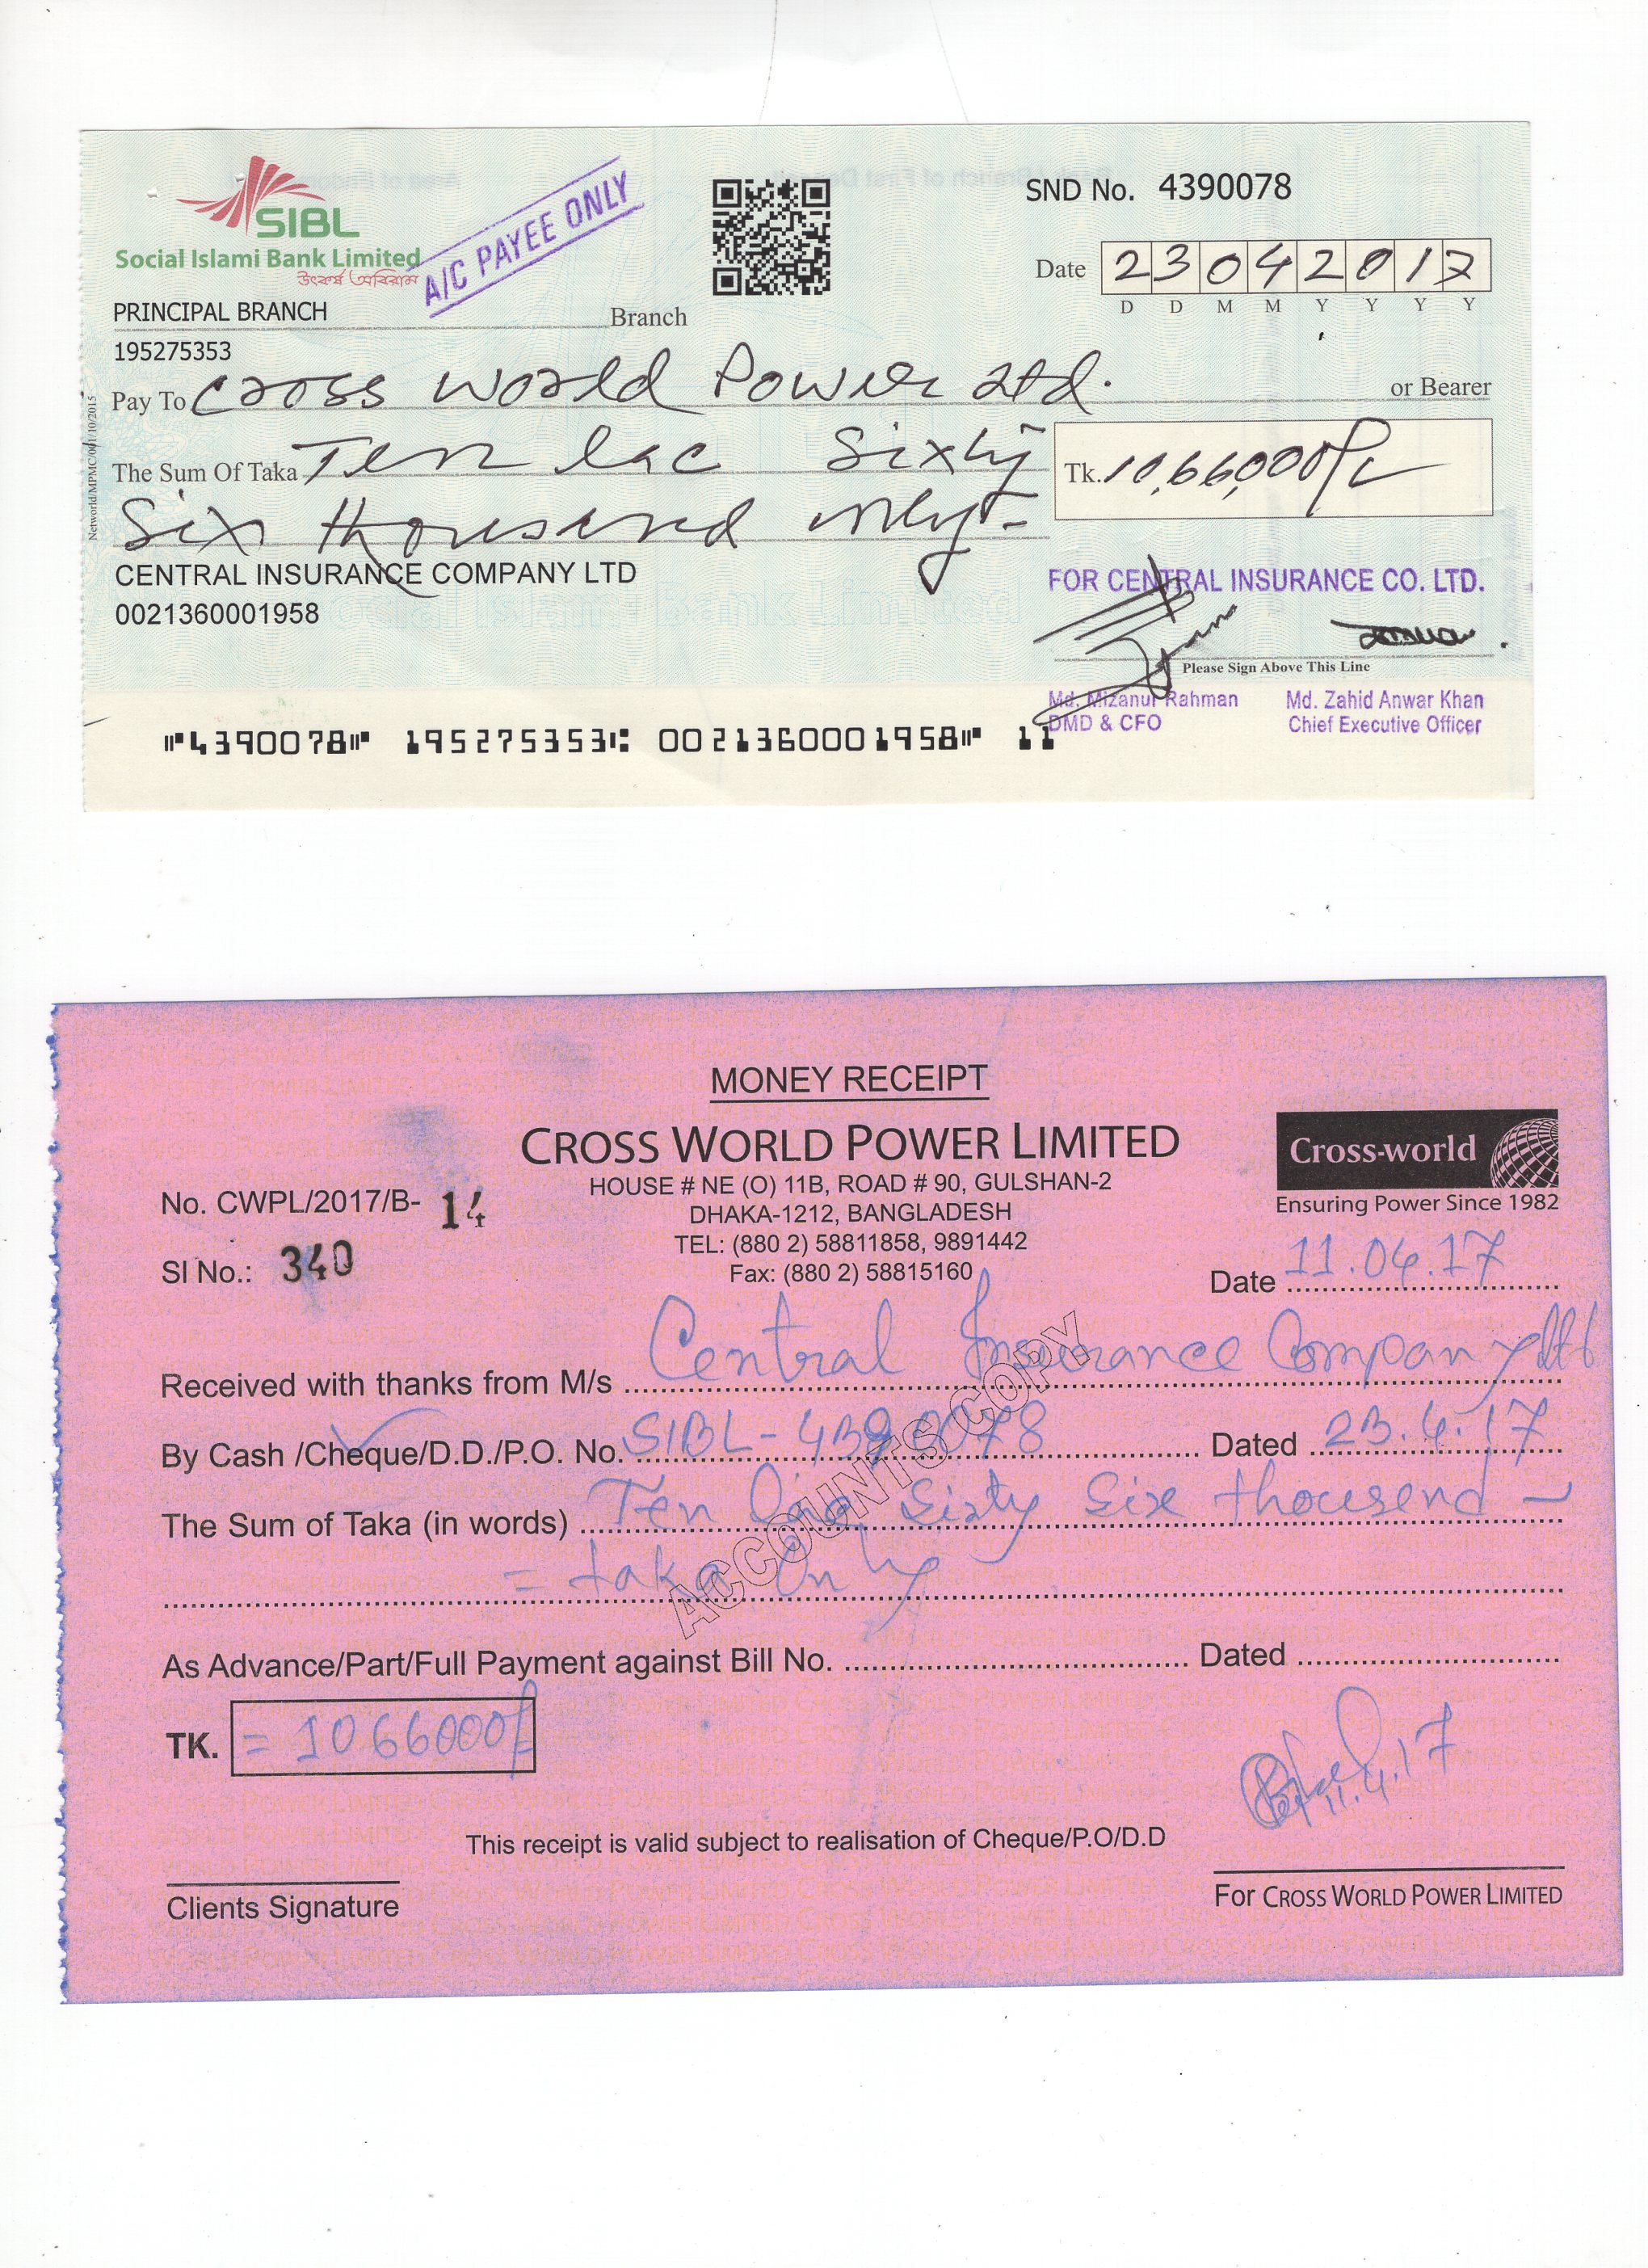 SIBL
Social Islami Bank Limited
উৎকর্ষ অবিরাম
A/C PAYEE ONLY
SND No. 4390078
Date 23042017
D D M M Y Y Y Y
PRINCIPAL BRANCH Branch
195275353
Pay To Cross World Power Ltd. or Bearer
The Sum Of Taka Ten lac Sixty
Tk. 10,66,000/-
Six thousand only -
Networld/MPMC/001/10/2015
CENTRAL INSURANCE COMPANY LTD
0021360001958
FOR CENTRAL INSURANCE CO. LTD.
Please Sign Above This Line
Md. Mizanur Rahman Md. Zahid Anwar Khan
DMD & CFO Chief Executive Officer
⑈4390078⑈ 195275353⑆ 0021360001958⑈ 11
MONEY RECEIPT
CROSS WORLD POWER LIMITED
HOUSE # NE (O) 11B, ROAD # 90, GULSHAN-2
DHAKA-1212, BANGLADESH
TEL: (880 2) 58811858, 9891442
Fax: (880 2) 58815160
Cross-world
Ensuring Power Since 1982
No. CWPL/2017/B- 14
SI No.: 340
Date 11.04.17
Received with thanks from M/s Central Insurance Company Ltd
By Cash /Cheque/D.D./P.O. No. SIBL-4390078 Dated 23.4.17
The Sum of Taka (in words) Ten lac Sixty Six thousend -
= taka only
ACCOUNTS COPY
As Advance/Part/Full Payment against Bill No. Dated
TK. = 1066000/-
11.4.17
This receipt is valid subject to realisation of Cheque/P.O/D.D
Clients Signature
For CROSS WORLD POWER LIMITED